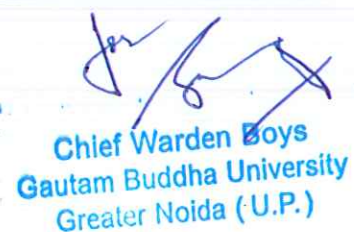 for
Chief Warden Boys
Gautam Buddha University
Greater Noida (U.P.)